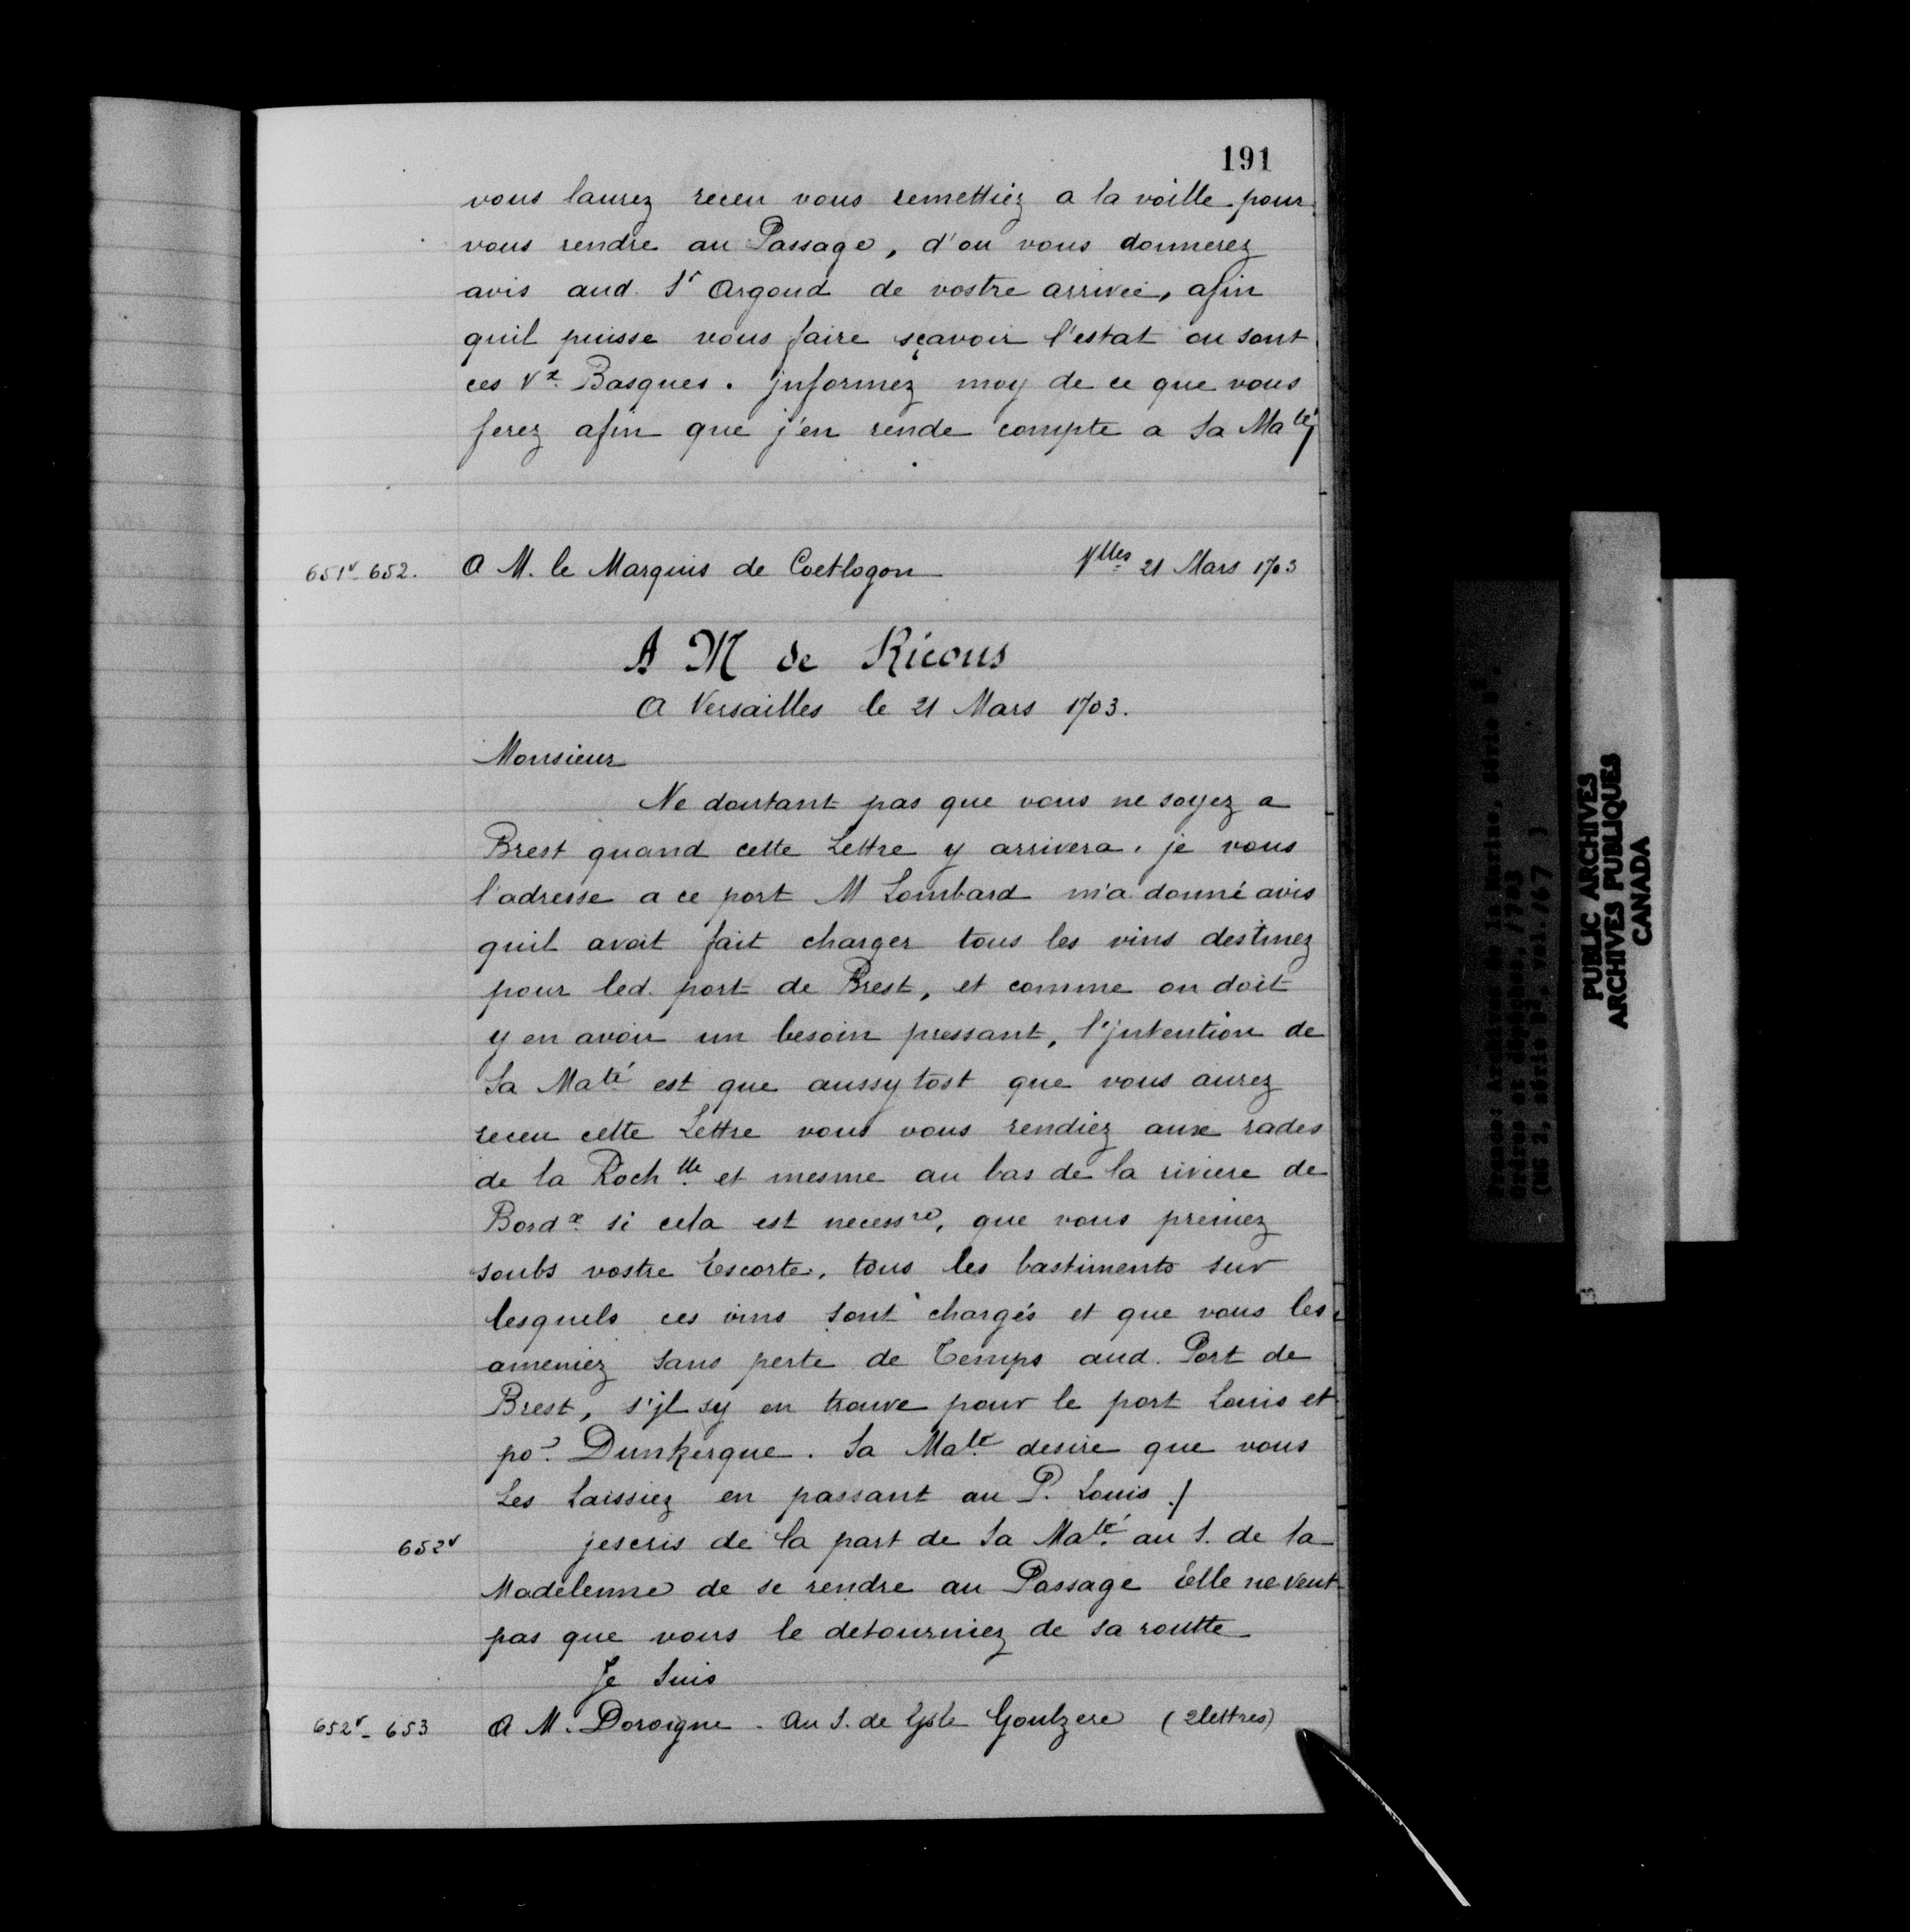 191
vous laurez receu vous remettiez a la voille pour
vous rendre au Passage, d'ou vous donnerez
avis aud. Sr Argoud de vostre arrivée, afin
quil puisse vous faire sçavoir l'estat ou sont
ces Vx Basques. jnformez moy de ce que vous
ferez afin que j'en rende compte a Sa Maté
651v-652. A M. le Marquis de Coetlogon Vlles 21 Mars 1703
A M de Ricous
A Versailles le 21 Mars 1703.
Monsieur
Ne doutant pas que vous ne soyez a
Brest quand cette Lettre y arrivera. je vous
l'adresse a ce port M Lombard m'a donné avis
quil avoit fait charger tous les vins destinez
pour led. port de Brest, et comme on doit
y en avoir un besoin pressant, l'jntention de
Sa Maté est que aussy tost que vous aurez
receu cette Lettre vous vous rendiez aux rades
de la Rochlle et mesme au bas de la riviere de
Bordx si cela est necessre, que vous preniez
soubs vostre Escorte, tous les bastiments sur
lesquels ces vins sont chargés et que vous les
ameniez sans perte de Temps aud. Port de
Brest, s'jl sy en trouve pour le port Louis et
por Dunkerque. Sa Maté desire que vous
Les laissiez en passant au P. Louis ./
652v jescris de la part de Sa Maté. au S. de la
Madelenne de se rendre au Passage elle ne veut
pas que vous le detourniez de sa routte
Je Suis
652v-653 A M. Doroigne. Au S. de Lysle Goulzere (2 lettres)
PUBLIC ARCHIVES
ARCHIVES PUBLIQUES
CANADA
France: Archives de la Marine, Série B2,
Ordres et dépêches, 1703
(MG 2, série B2, vol. 167 )